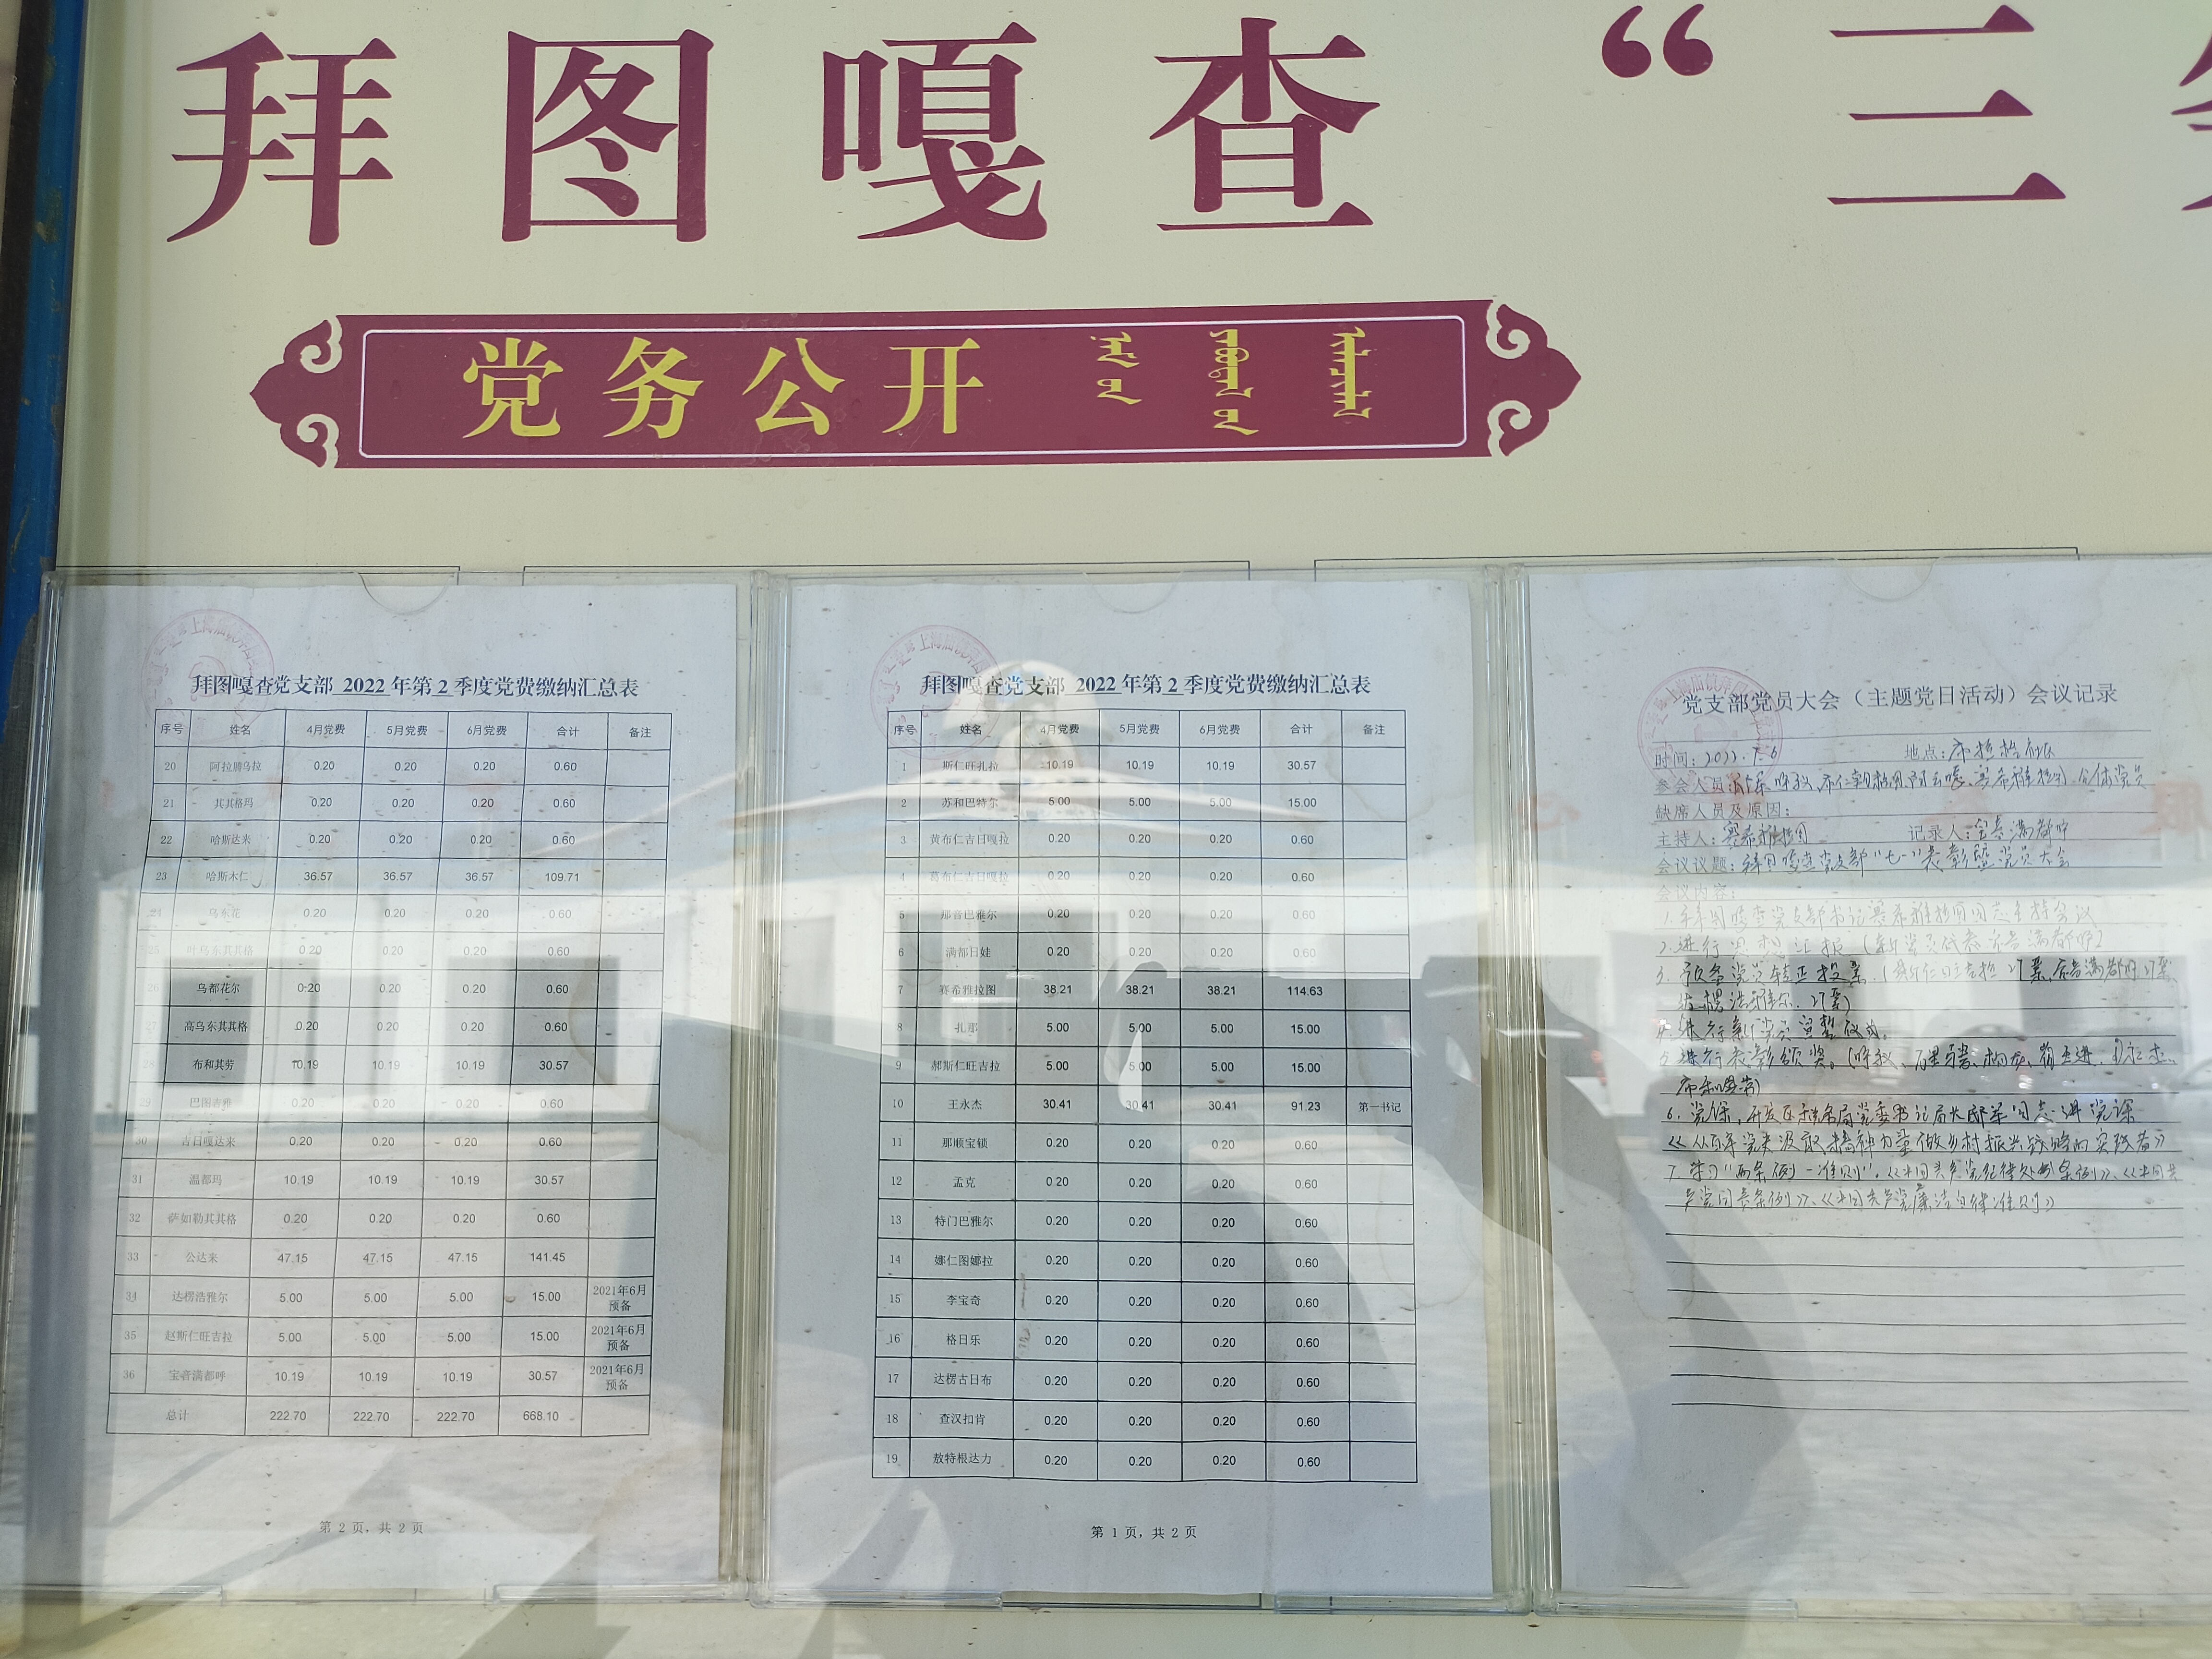 拜图嘎查 “三
党务公开
拜图嘎查党支部 2022 年第 2 季度党费缴纳汇总表
序号 姓名 4月党费 5月党费 6月党费 合计 备注
20 阿拉腾乌拉 0.20 0.20 0.20 0.60
21 其其格玛 0.20 0.20 0.20 0.60
22 哈斯达来 0.20 0.20 0.20 0.60
23 哈斯木仁 36.57 36.57 36.57 109.71
24 乌东花 0.20 0.20 0.20 0.60
25 叶乌东其其格 0.20 0.20 0.20 0.60
26 乌都花尔 0.20 0.20 0.20 0.60
27 高乌东其其格 0.20 0.20 0.20 0.60
28 布和其劳 10.19 10.19 10.19 30.57
29 巴图吉雅 0.20 0.20 0.20 0.60
30 吉日嘎达来 0.20 0.20 0.20 0.60
31 温都玛 10.19 10.19 10.19 30.57
32 萨如勒其其格 0.20 0.20 0.20 0.60
33 公达来 47.15 47.15 47.15 141.45
34 达楞浩雅尔 5.00 5.00 5.00 15.00 2021年6月预备
35 赵斯仁旺吉拉 5.00 5.00 5.00 15.00 2021年6月预备
36 宝音满都呼 10.19 10.19 10.19 30.57 2021年6月预备
总计 222.70 222.70 222.70 668.10
第 2 页，共 2 页
拜图嘎查党支部 2022 年第 2 季度党费缴纳汇总表
序号 姓名 4月党费 5月党费 6月党费 合计 备注
1 斯仁旺扎拉 10.19 10.19 10.19 30.57
2 苏和巴特尔 5.00 5.00 5.00 15.00
3 黄布仁吉日嘎拉 0.20 0.20 0.20 0.60
4 葛布仁吉日嘎拉 0.20 0.20 0.20 0.60
5 那音巴雅尔 0.20 0.20 0.20 0.60
6 满都日娃 0.20 0.20 0.20 0.60
7 赛希雅拉图 38.21 38.21 38.21 114.63
8 扎那 5.00 5.00 5.00 15.00
9 郝斯仁旺吉拉 5.00 5.00 5.00 15.00
10 王永杰 30.41 30.41 30.41 91.23 第一书记
11 那顺宝锁 0.20 0.20 0.20 0.60
12 孟克 0.20 0.20 0.20 0.60
13 特门巴雅尔 0.20 0.20 0.20 0.60
14 娜仁图娜拉 0.20 0.20 0.20 0.60
15 李宝奇 0.20 0.20 0.20 0.60
16 格日乐 0.20 0.20 0.20 0.60
17 达楞古日布 0.20 0.20 0.20 0.60
18 查汉扣肯 0.20 0.20 0.20 0.60
19 敖特根达力 0.20 0.20 0.20 0.60
第 1 页，共 2 页
党支部党员大会（主题党日活动）会议记录
时间：2022.7.6 地点：
参会人员： 赛希雅拉图 全体党员
缺席人员及原因：
主持人：赛希雅拉图 记录人：宝音满都呼
会议议题：拜图嘎查党支部“七一”表彰暨党员大会
会议内容：
1. 拜图嘎查党支部书记赛希雅拉图同志主持会议
2. 进行思想汇报（新党员代表宝音满都呼）
3. 预备党员转正投票（ 27票、宝音满都呼 27票、
达楞浩雅尔 27票）
4. 进行新党员宣誓仪式。
5. 进行表彰颁奖。
6. 党课，开发区 局党委书记局长 同志讲党课
《从百年党史汲取精神力量做乡村振兴战略的实践者》
7. 学习“两条例一准则”，《中国共产党纪律处分条例》、《中国共
产党问责条例》、《中国共产党廉洁自律准则》